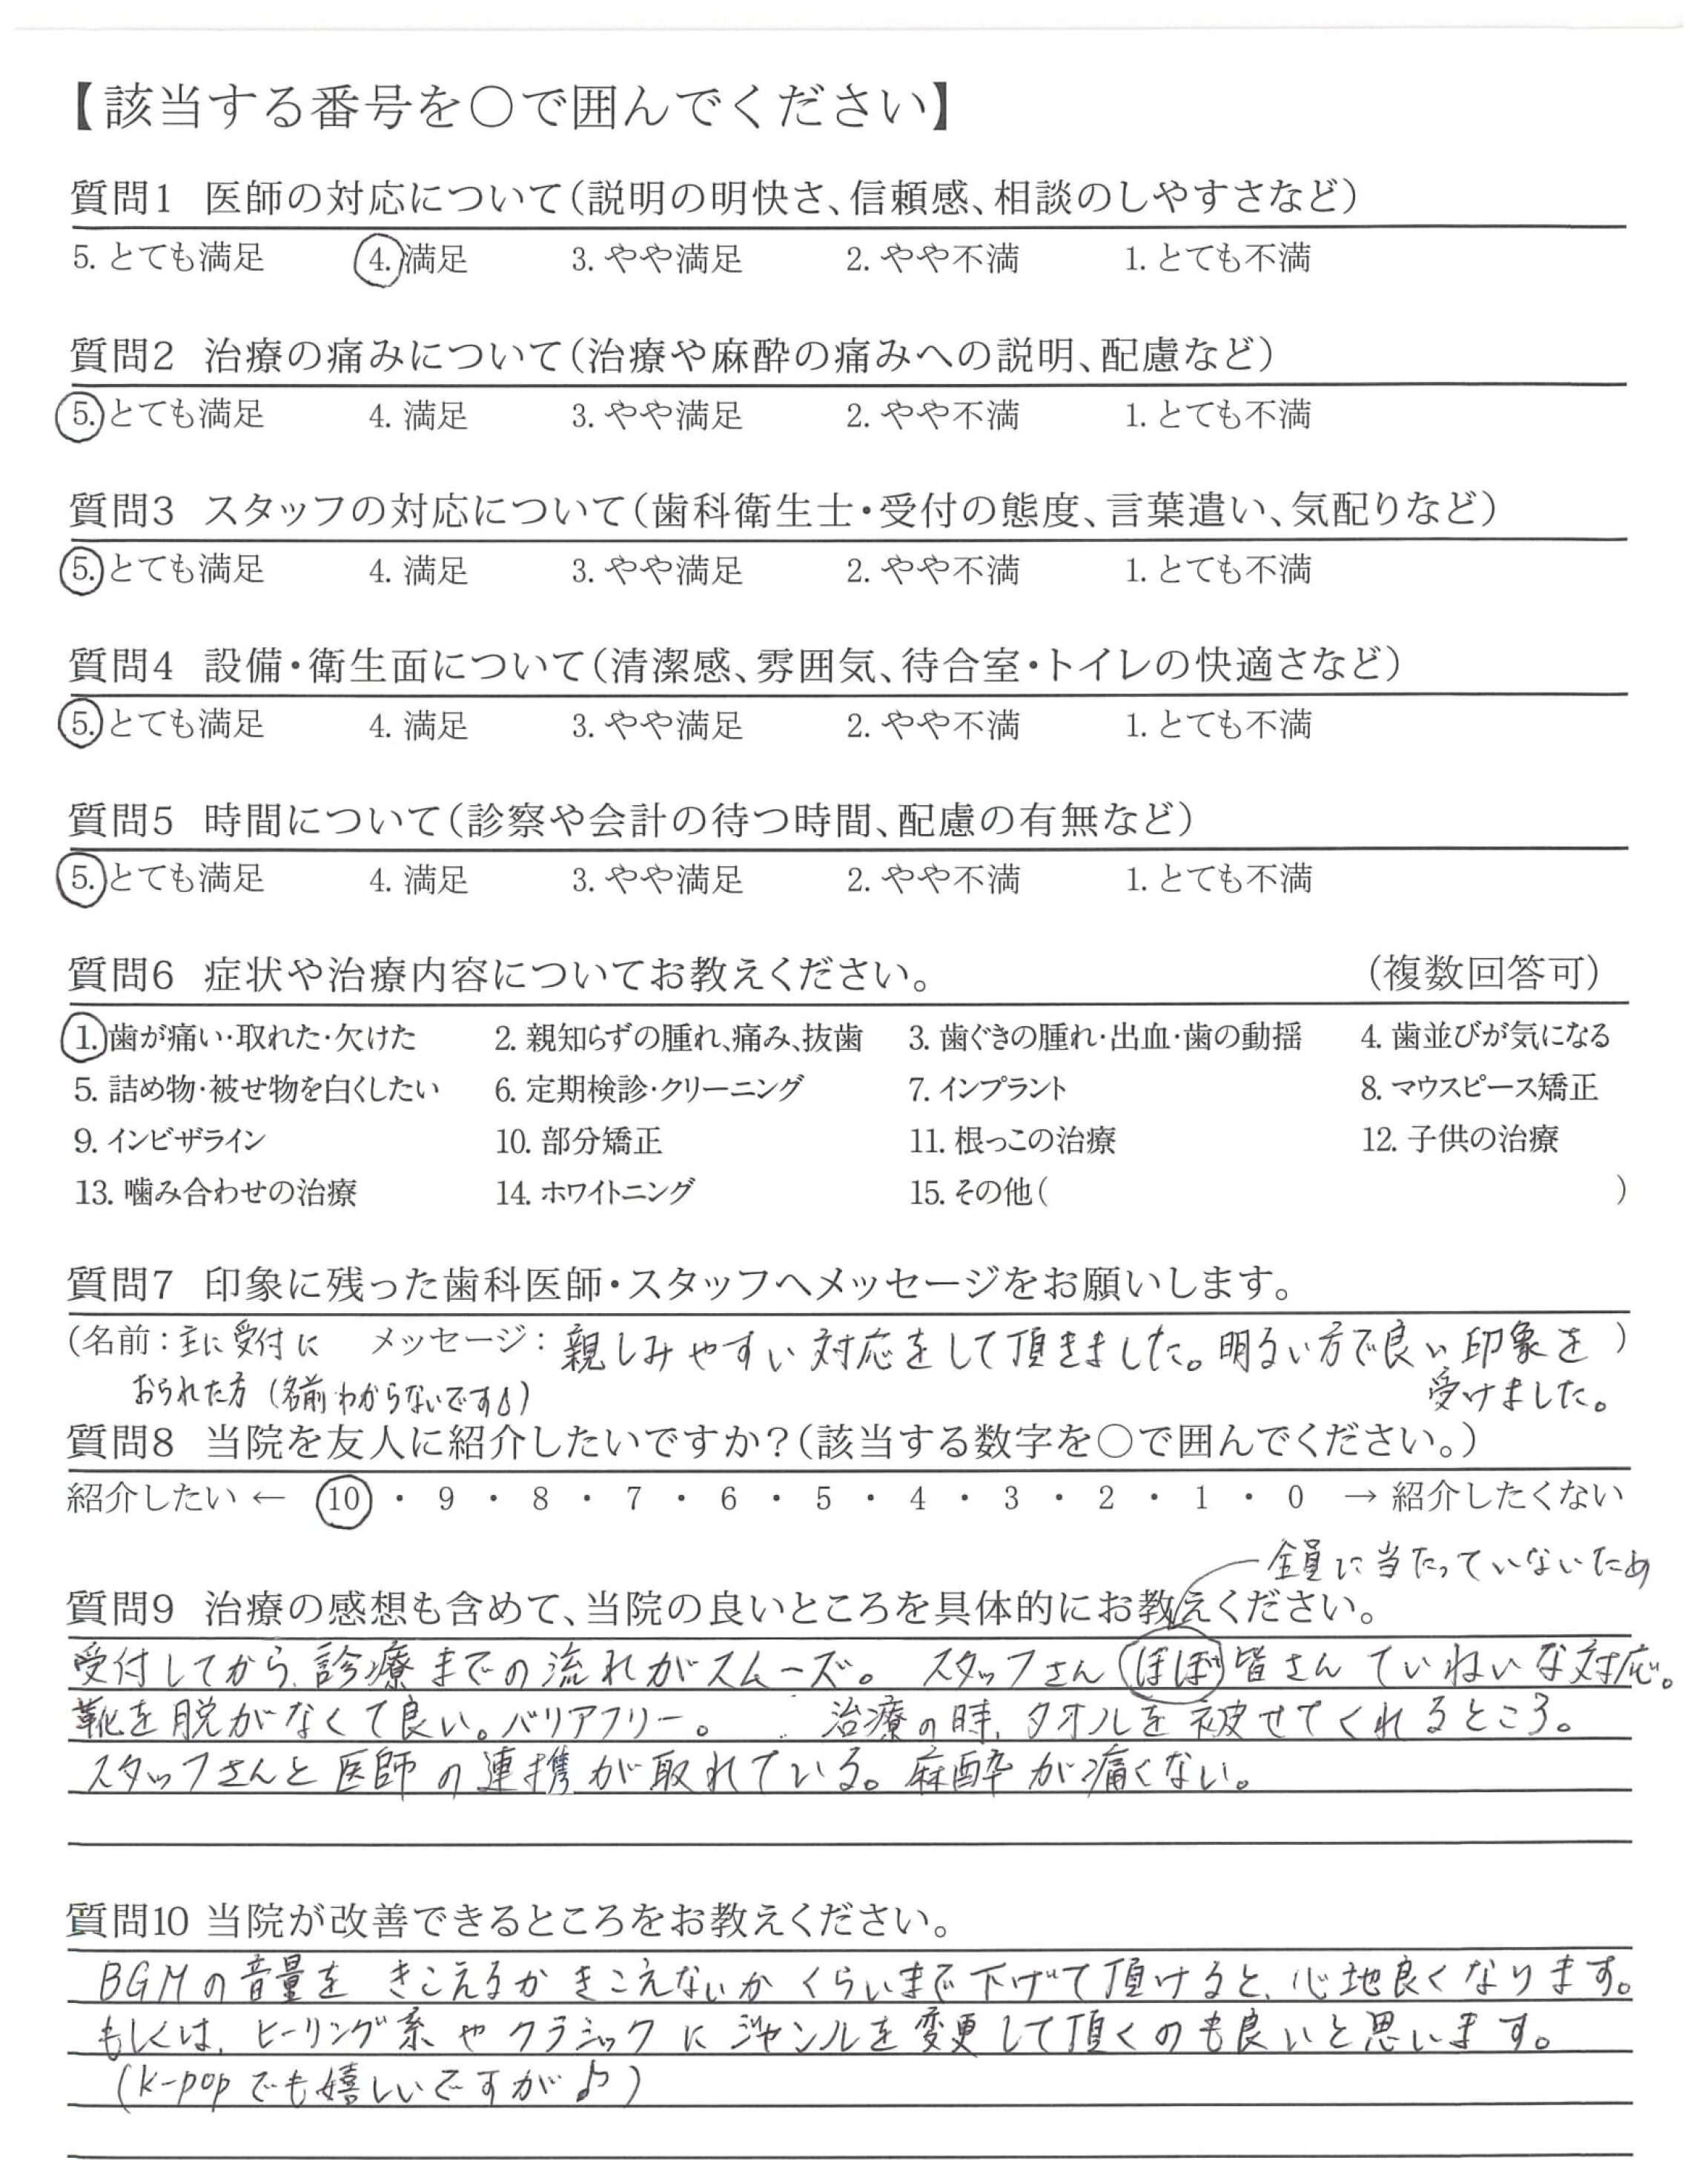 【該当する番号を○で囲んでください】
質問1 医師の対応について(説明の明快さ、信頼感、相談のしやすさなど)
5. とても満足 4. 満足 3. やや満足 2. やや不満 1. とても不満
質問2 治療の痛みについて(治療や麻酔の痛みへの説明、配慮など)
5. とても満足 4. 満足 3. やや満足 2. やや不満 1. とても不満
質問3 スタッフの対応について(歯科衛生士・受付の態度、言葉遣い、気配りなど)
5. とても満足 4. 満足 3. やや満足 2. やや不満 1. とても不満
質問4 設備・衛生面について(清潔感、雰囲気、待合室・トイレの快適さなど)
5. とても満足 4. 満足 3. やや満足 2. やや不満 1. とても不満
質問5 時間について(診察や会計の待つ時間、配慮の有無など)
5. とても満足 4. 満足 3. やや満足 2. やや不満 1. とても不満
質問6 症状や治療内容についてお教えください。 (複数回答可)
1. 歯が痛い・取れた・欠けた 2. 親知らずの腫れ、痛み、抜歯 3. 歯ぐきの腫れ・出血・歯の動揺 4. 歯並びが気になる
5. 詰め物・被せ物を白くしたい 6. 定期検診・クリーニング 7. インプラント 8. マウスピース矯正
9. インビザライン 10. 部分矯正 11. 根っこの治療 12. 子供の治療
13. 噛み合わせの治療 14. ホワイトニング 15. その他( )
質問7 印象に残った歯科医師・スタッフへメッセージをお願いします。
(名前:主に受付に メッセージ:親しみやすい対応をして頂きました。明るい方で良い印象を)
おられた方(名前わからないです) 受けました。
質問8 当院を友人に紹介したいですか?(該当する数字を○で囲んでください。)
紹介したい ← 10 ・ 9 ・ 8 ・ 7 ・ 6 ・ 5 ・ 4 ・ 3 ・ 2 ・ 1 ・ 0 → 紹介したくない
全員に当たっていないため
質問9 治療の感想も含めて、当院の良いところを具体的にお教えください。
受付してから、診療までの流れがスムーズ。 スタッフさんほぼ皆さんていねいな対応。
靴を脱がなくて良い。バリアフリー。 治療の時、タオルを被せてくれるところ。
スタッフさんと医師の連携が取れている。麻酔が痛くない。
質問10 当院が改善できるところをお教えください。
BGMの音量をきこえるかきこえないかくらいまで下げて頂けると、心地良くなります。
もしくは、ヒーリング系やクラシックにジャンルを変更して頂くのも良いと思います。
(K-popでも嬉しいですが♪)